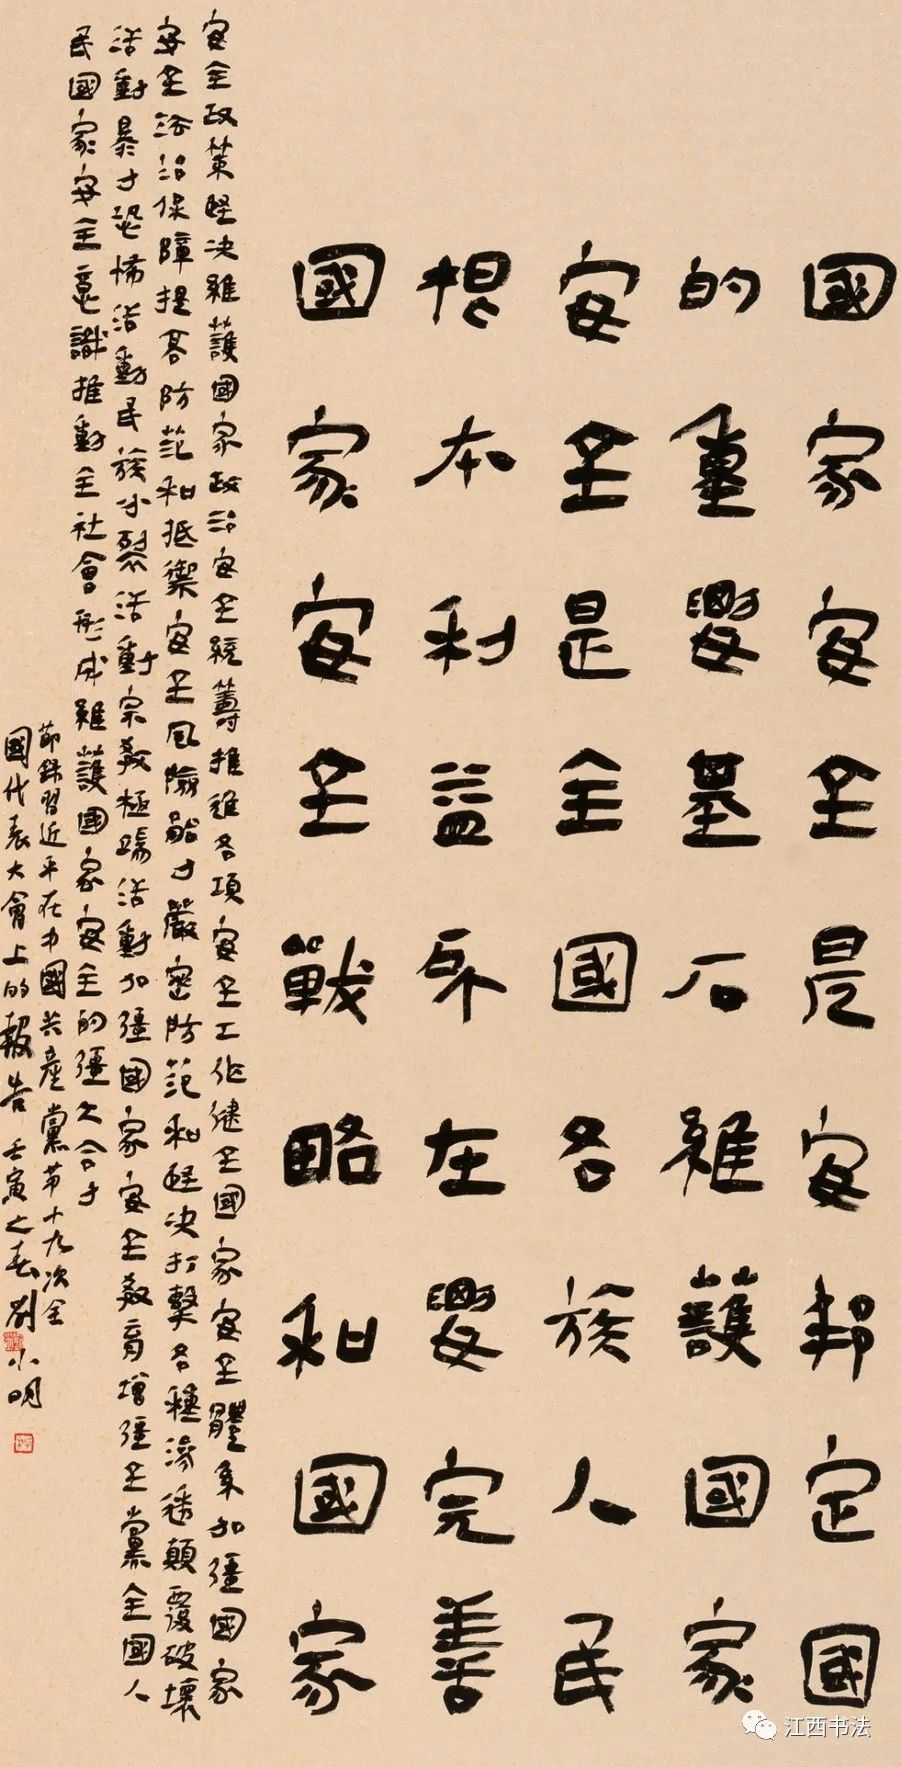 國家安全是安邦定國
的重要基石維護國家
安全是全國各族人民
根本利益所在要完善
國家安全戰略和國家
安全政策堅決維護國家政治安全統籌推進各項安全工作健全國家安全體系加強國家
安全法治保障提高防范和抵禦安全風險能力嚴密防范和堅決打擊各種滲透顛覆破壞
活動暴力恐怖活動民族分裂活動宗教極端活動加強國家安全教育增強全黨全國人
民國家安全意識推動全社會形成維護國家安全的強大合力
節錄習近平在中國共產黨第十九次全
國代表大會上的報告壬寅之春劉小明
江西书法